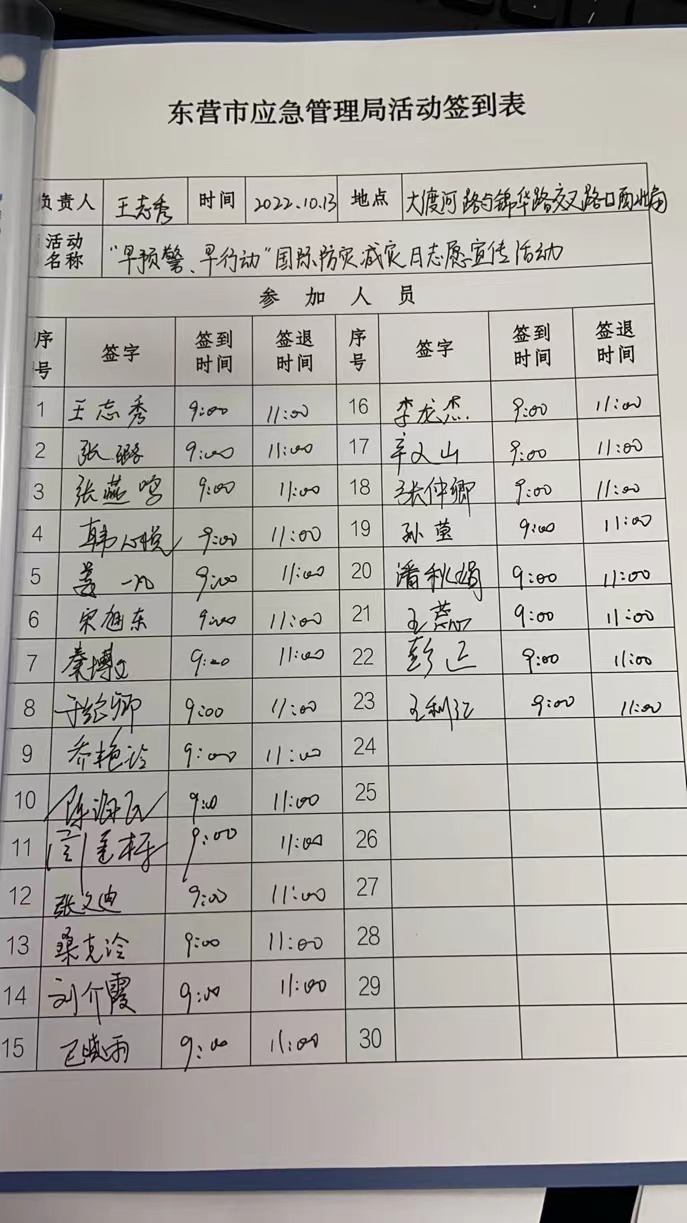 东营市应急管理局活动签到表
负责人 王志秀 时间 2022.10.13 地点 大渡河路与锦华路交叉路口西北角
活动名称 "早预警、早行动"国际防灾减灾日志愿宣传活动
参加人员
序号 签字 签到时间 签退时间 序号 签字 签到时间 签退时间
1 王志秀 9:00 11:00 16 李龙杰 9:00 11:00
2 张璐 9:00 11:00 17 辛文山 9:00 11:00
3 张燕鸣 9:00 11:00 18 张仲卿 9:00 11:00
4 韩心悦 9:00 11:00 19 孙莹 9:00 11:00
5 姜一凡 9:00 11:00 20 潘秋娟 9:00 11:00
6 宋旭东 9:00 11:00 21 王蕊 9:00 11:00
7 秦博文 9:00 11:00 22 彭 9:00 11:00
8 卿 9:00 11:00 23 王利江 9:00 11:00
9 乔艳玲 9:00 11:00 24
10 陈海 9:0 11:00 25
11 9:00 11:00 26
12 张文迪 9:00 11:00 27
13 桑克泠 9:00 11:00 28
14 刘介霞 9:00 11:00 29
15 晓雨 9:00 11:00 30